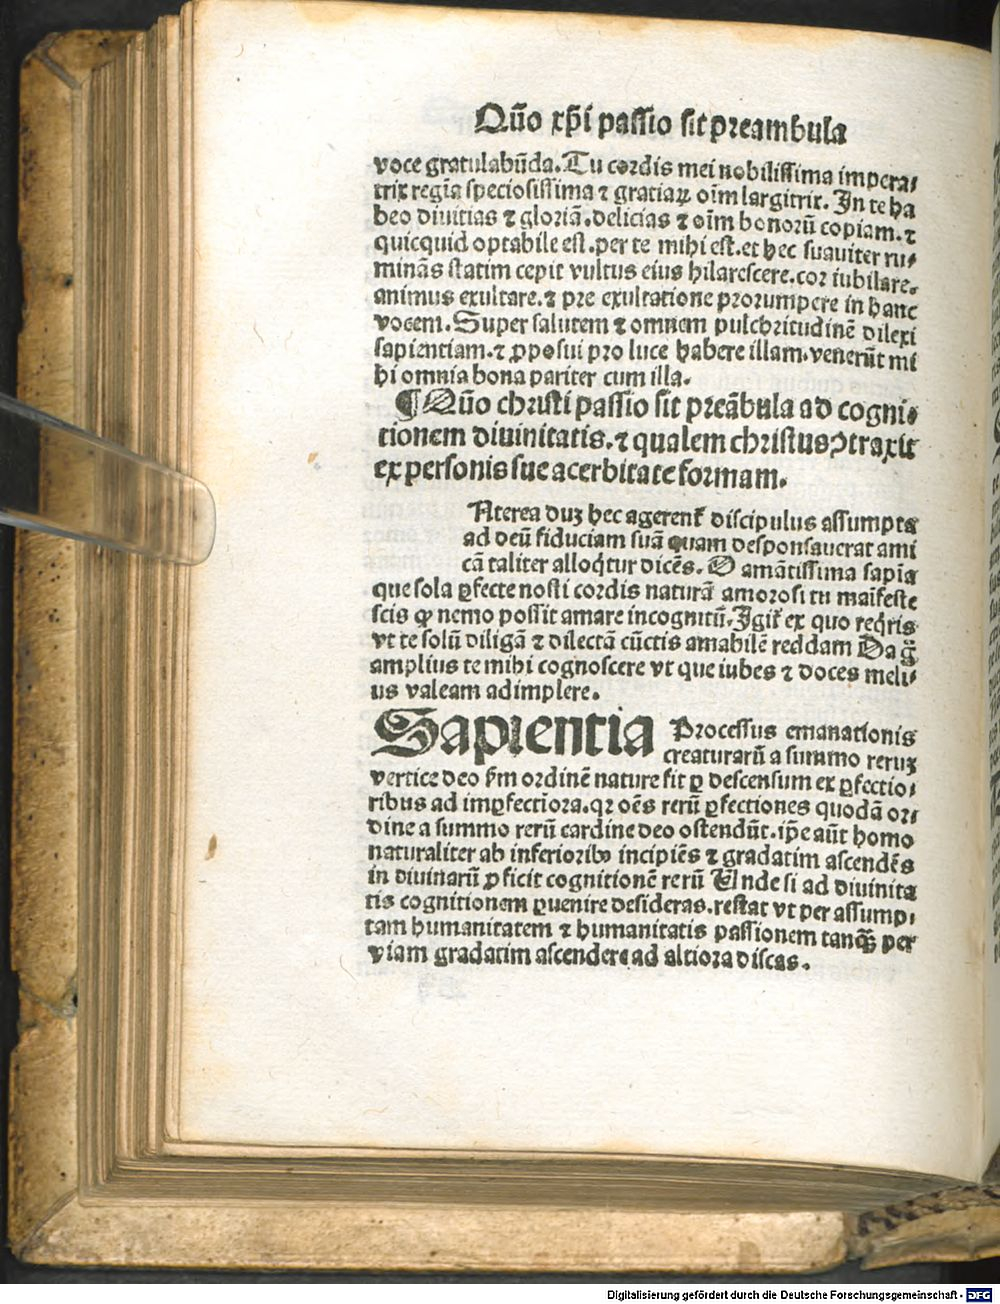 Quō xp̄i passio sit preambula
voce gratulabūda. Tu cordis mei nobilissima impera/
trix regīa speciosissima ⁊ gratiaꝝ oīm largitrix. In te ha
beo diuitias ⁊ gloriā. delicias ⁊ oīm bonorū copiam. ⁊
quicquid optabile est. per te mihi est. et hec suauiter ru/
minās statim cepit vultus eius hilarescere. cor iubilare.
animus exultare. ⁊ pre exultatione prorumpere in hanc
vocem. Super salutem ⁊ omnem pulchritudinē dilexi
sapientiam. ⁊ ꝓposui pro luce habere illam. venerūt mi
hi omnia bona pariter cum illa.
¶ Quō christi passio sit preābula ad cogni/
tionem diuinitatis. ⁊ qualem christus ꝯtraxit
ex personis sue acerbitate formam.
Nterea duꝫ hec agerent᷑ discipulus assumpta
ad deū fiduciam suā quam desponsauerat ami
cā taliter alloq̄tur dicēs. O amātissima sapīa
que sola ꝑfecte nosti cordis naturā amorosi tu maīfeste
scis ꝙ nemo possit amare incognitū. Igit᷑ ex quo req̄ris
vt te solū diligā ⁊ dilectā cūctis amabilē reddam Da q̄
amplius te mihi cognoscere vt que iubes ⁊ doces meli/
us valeam adimplere.
Sapientia Processus emanationis
creaturarū a summo reruꝫ
vertice deo ẜm ordinē nature fit ꝑ descensum ex ꝑfectio/
ribus ad imꝑfectiora. qr oēs rerū ꝑfectiones quodā or/
dine a summo rerū cardine deo ostendūt. ip̄e aūt homo
naturaliter ab inferioribꝰ incipiēs ⁊ gradatim ascendēs
in diuinarū ꝓficit cognitionē rerū Unde si ad diuinita
tis cognitionem ꝑuenire desideras. restat vt per assump/
tam humanitatem ⁊ humanitatis passionem tanꝙ̄ per
viam gradatim ascendere ad altiora discas.
Digitalisierung gefördert durch die Deutsche Forschungsgemeinschaft - DFG